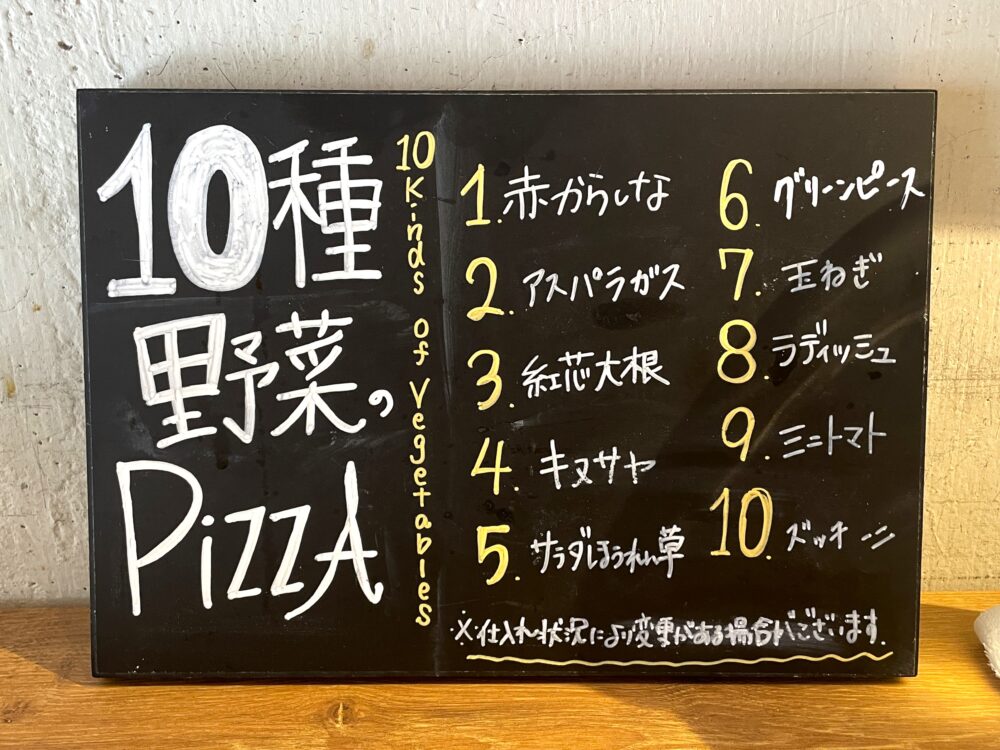 10種
野菜の
PizzA
10 Kinds of Vegetables
1. 赤からしな
2. アスパラガス
3. 紅芯大根
4. キヌサヤ
5. サラダほうれん草
6. グリーンピース
7. 玉ねぎ
8. ラディッシュ
9. ミニトマト
10. ズッキーニ
※仕入れ状況により変更がある場合がございます。